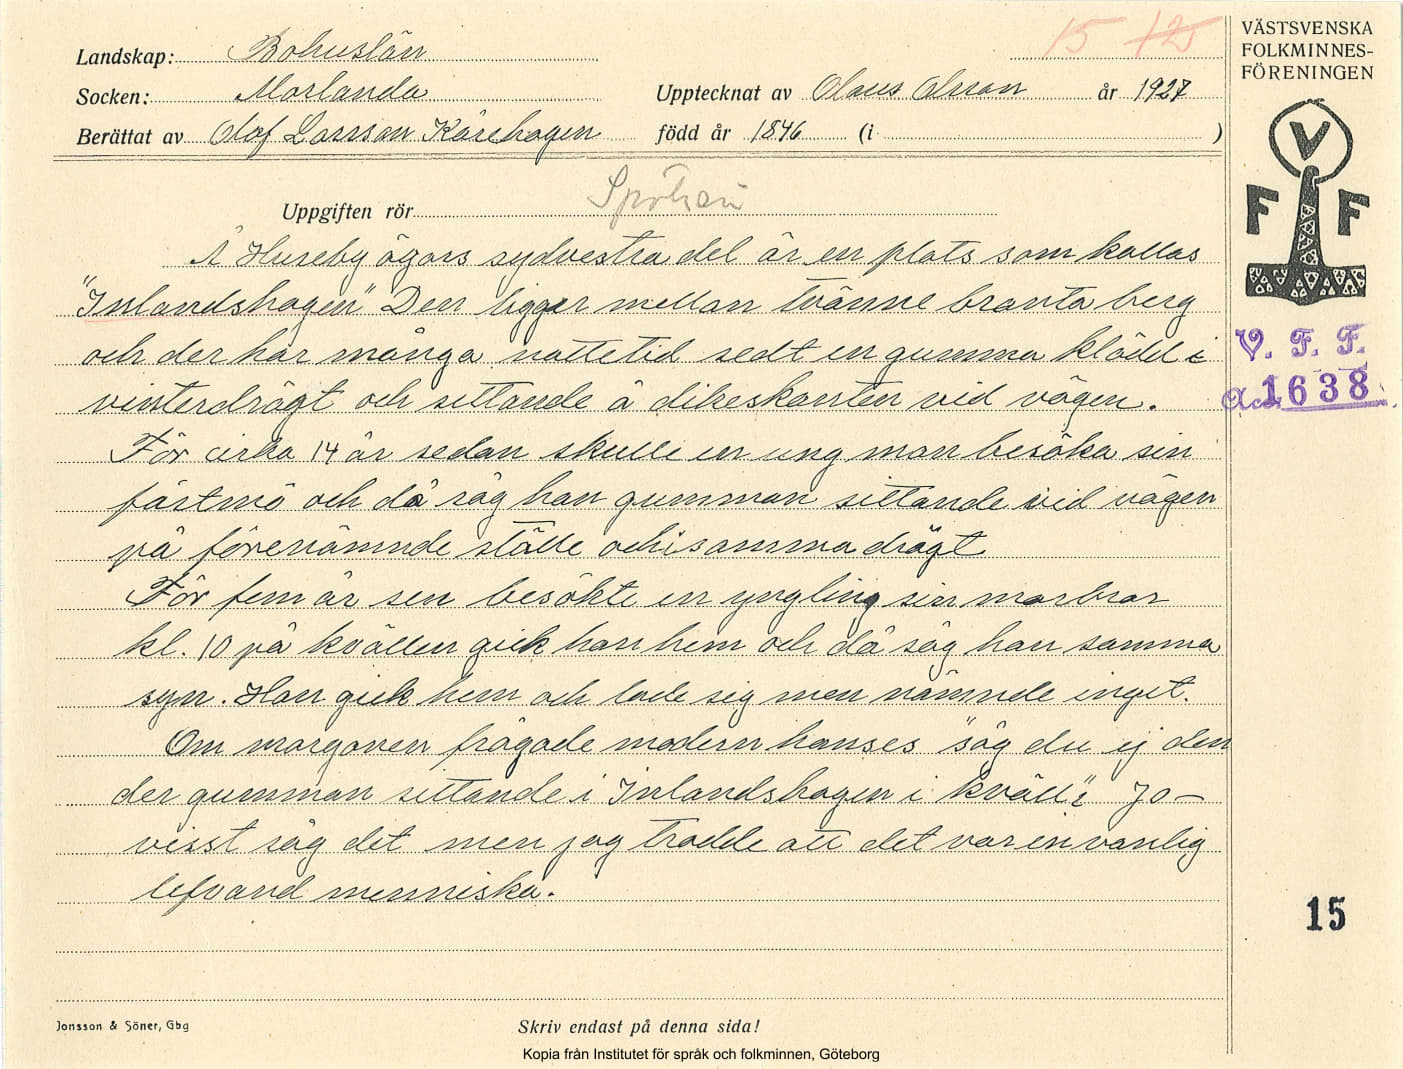 15 12
VÄSTSVENSKA
FOLKMINNES-
FÖRENINGEN
Landskap: Bohuslän
Socken: Morlanda
Upptecknat av Olaus Olsson år 1927
Berättat av Olof Larsson Kårehogen född år 1846 (i )
V
F F
Uppgiften rör
Å Huseby ägors sydvestra del är en plats som kallas
"Inlandshagen" Den ligger mellan tvänne branta berg
och der har många nattetid sedt en gumma klädd i
vinterdrägt och sittande å dikeskanten vid vägen.
För cirka 14 år sedan skulle en ung man besöka sin
fästmö och då såg han gumman sittande vid vägen
på förenämnde ställe och i samma drägt
För fem år sen besökte en yngling sin morbror
kl. 10 på kvällen gick han hem och då såg han samma
syn. Han gick hem och lade sig men nämnde inget.
Om morgonen frågade modern hanses "såg du ej den
der gumman sittande i Inlandshagen i kväll" Jo -
visst såg det men jag trodde att det var en vanlig
lefvand menniska.
V. F. F.
Acc. 1638
15
Jonsson & Söner, Gbg
Skriv endast på denna sida!
Kopia från Institutet för språk och folkminnen, Göteborg